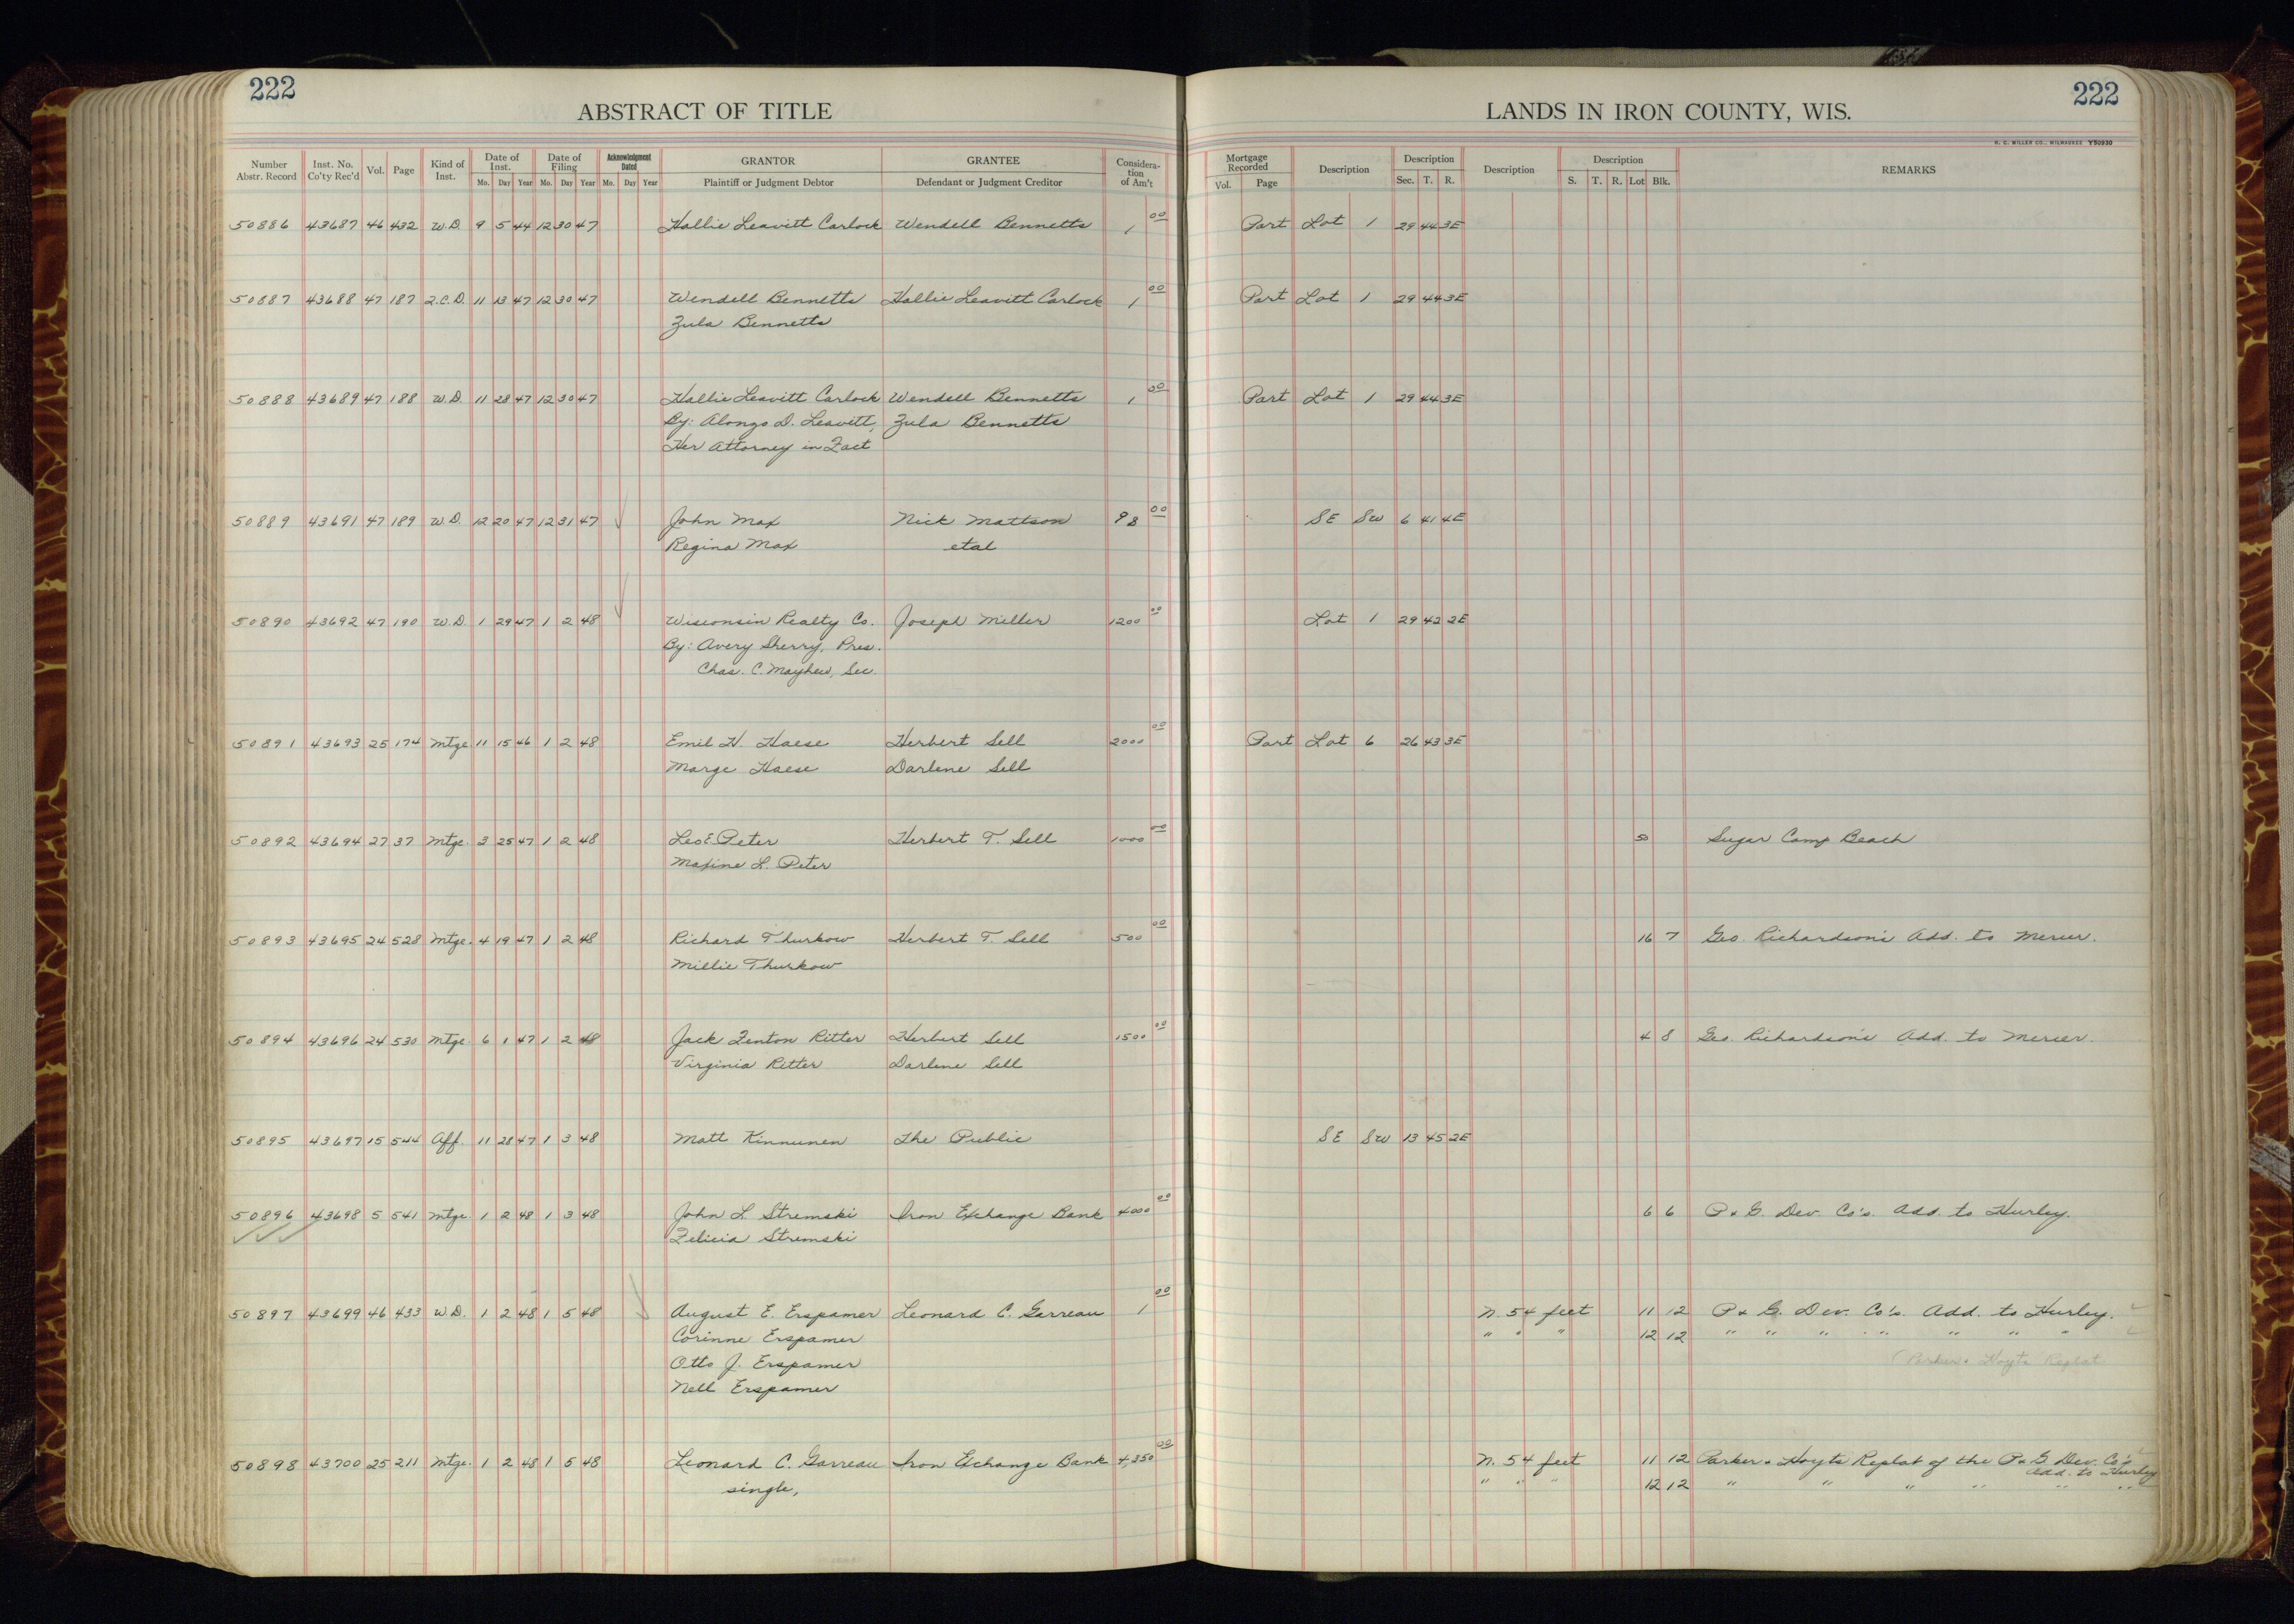 222
ABSTRACT OF TITLE
LANDS IN IRON COUNTY, WIS.
222
H. C. MILLER CO., MILWAUKEE Y50930
Number Abstr. Record Inst. No. Co'ty Rec'd Vol. Page Kind of Inst. Date of Inst. Mo. Day Year Date of Filing Mo. Day Year Acknowledgment Dated Mo. Day Year GRANTOR Plaintiff or Judgment Debtor GRANTEE Defendant or Judgment Creditor Considera-tion of Am't Mortgage Recorded Vol. Page Description Description Sec. T. R. Description Description S. T. R. Lot Blk. REMARKS
50886 43687 46 432 W.D. 9 5 44 12 30 47 Hallie Leavitt Carlock Wendell Bennetts 1 00 Part Lot 1 29 44 3E
50887 43688 47 187 Q.C.D. 11 13 47 12 30 47 Wendell Bennetts Hallie Leavitt Carlock 1 00 Part Lot 1 29 44 3E
Zula Bennetts
50888 43689 47 188 W.D. 11 28 47 12 30 47 Hallie Leavitt Carlock Wendell Bennetts 1 00 Part Lot 1 29 44 3E
By: Alonzo D. Leavitt, Zula Bennetts
Her Attorney in Fact
50889 43691 47 189 W.D. 12 20 47 12 31 47 John Max Nick Mattson 98 00 SE SW 6 41 4E
Regina Max etal
50890 43692 47 190 W.D. 1 29 47 1 2 48 Wisconsin Realty Co. Joseph Miller 1200 00 Lot 1 29 42 2E
By: Avery Sherry, Pres.
Chas. C. Mayhew, Sec.
50891 43693 25 174 Mtge 11 15 46 1 2 48 Emil H. Haese Herbert Sell 2000 00 Part Lot 6 26 43 3E
Marge Haese Darlene Sell
50892 43694 27 37 Mtge. 3 25 47 1 2 48 Leo E. Peter Herbert T. Sell 1000 00 50 Sugar Camp Beach
Maxine L. Peter
50893 43695 24 528 Mtge. 4 19 47 1 2 48 Richard Thurkow Herbert T. Sell 500 00 16 7 Geo. Richardson's Add. to Mercer.
Millie Thurkow
50894 43696 24 530 Mtge. 6 1 47 1 2 48 Jack Fenton Ritter Herbert Sell 1500 00 4 8 Geo. Richardson's Add. to Mercer.
Virginia Ritter Darlene Sell
50895 43697 15 544 Aff. 11 28 47 1 3 48 Matt Kinnunen The Public SE SW 13 45 2E
50896 43698 5 541 Mtge. 1 2 48 1 3 48 John L. Stremski Iron Exchange Bank 4000 00 6 6 P & G. Dev. Co's. Add. to Hurley.
Felicia Stremski
50897 43699 46 433 W.D. 1 2 48 1 5 48 August E. Erspamer Leonard C. Garreau 1 00 N. 54 feet 11 12 P & G. Dev. Co's. Add. to Hurley.
Corinne Erspamer " " " 12 12 " " " " " " "
Otto J. Erspamer (Parker & Hoyts Replat
Nell Erspamer
50898 43700 25 211 Mtge. 1 2 48 1 5 48 Leonard C. Garreau Iron Exchange Bank 4350 00 N. 54 feet 11 12 Parker & Hoyts Replat of the P & G Dev. Co's
Add. to Hurley
single, " " " 12 12 " " " " " "